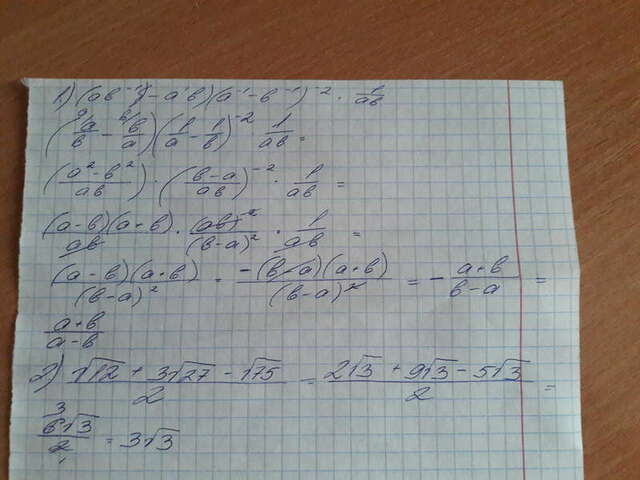 1) (ab⁻¹ - a⁻¹b)(a⁻¹ - b⁻¹)⁻² · 1/ab
(a/b - b/a)(1/a - 1/b)⁻² · 1/ab =
((a² - b²)/ab) · ((b-a)/ab)⁻² · 1/ab =
(a-b)(a+b)/ab · (ab)²/(b-a)² · 1/ab =
(a-b)(a+b)/(b-a)² = -(b-a)(a+b)/(b-a)² = - (a+b)/(b-a) =
(a+b)/(a-b)
2) (√12 + 3√27 - √75)/2 = (2√3 + 9√3 - 5√3)/2 =
6√3/2 = 3√3